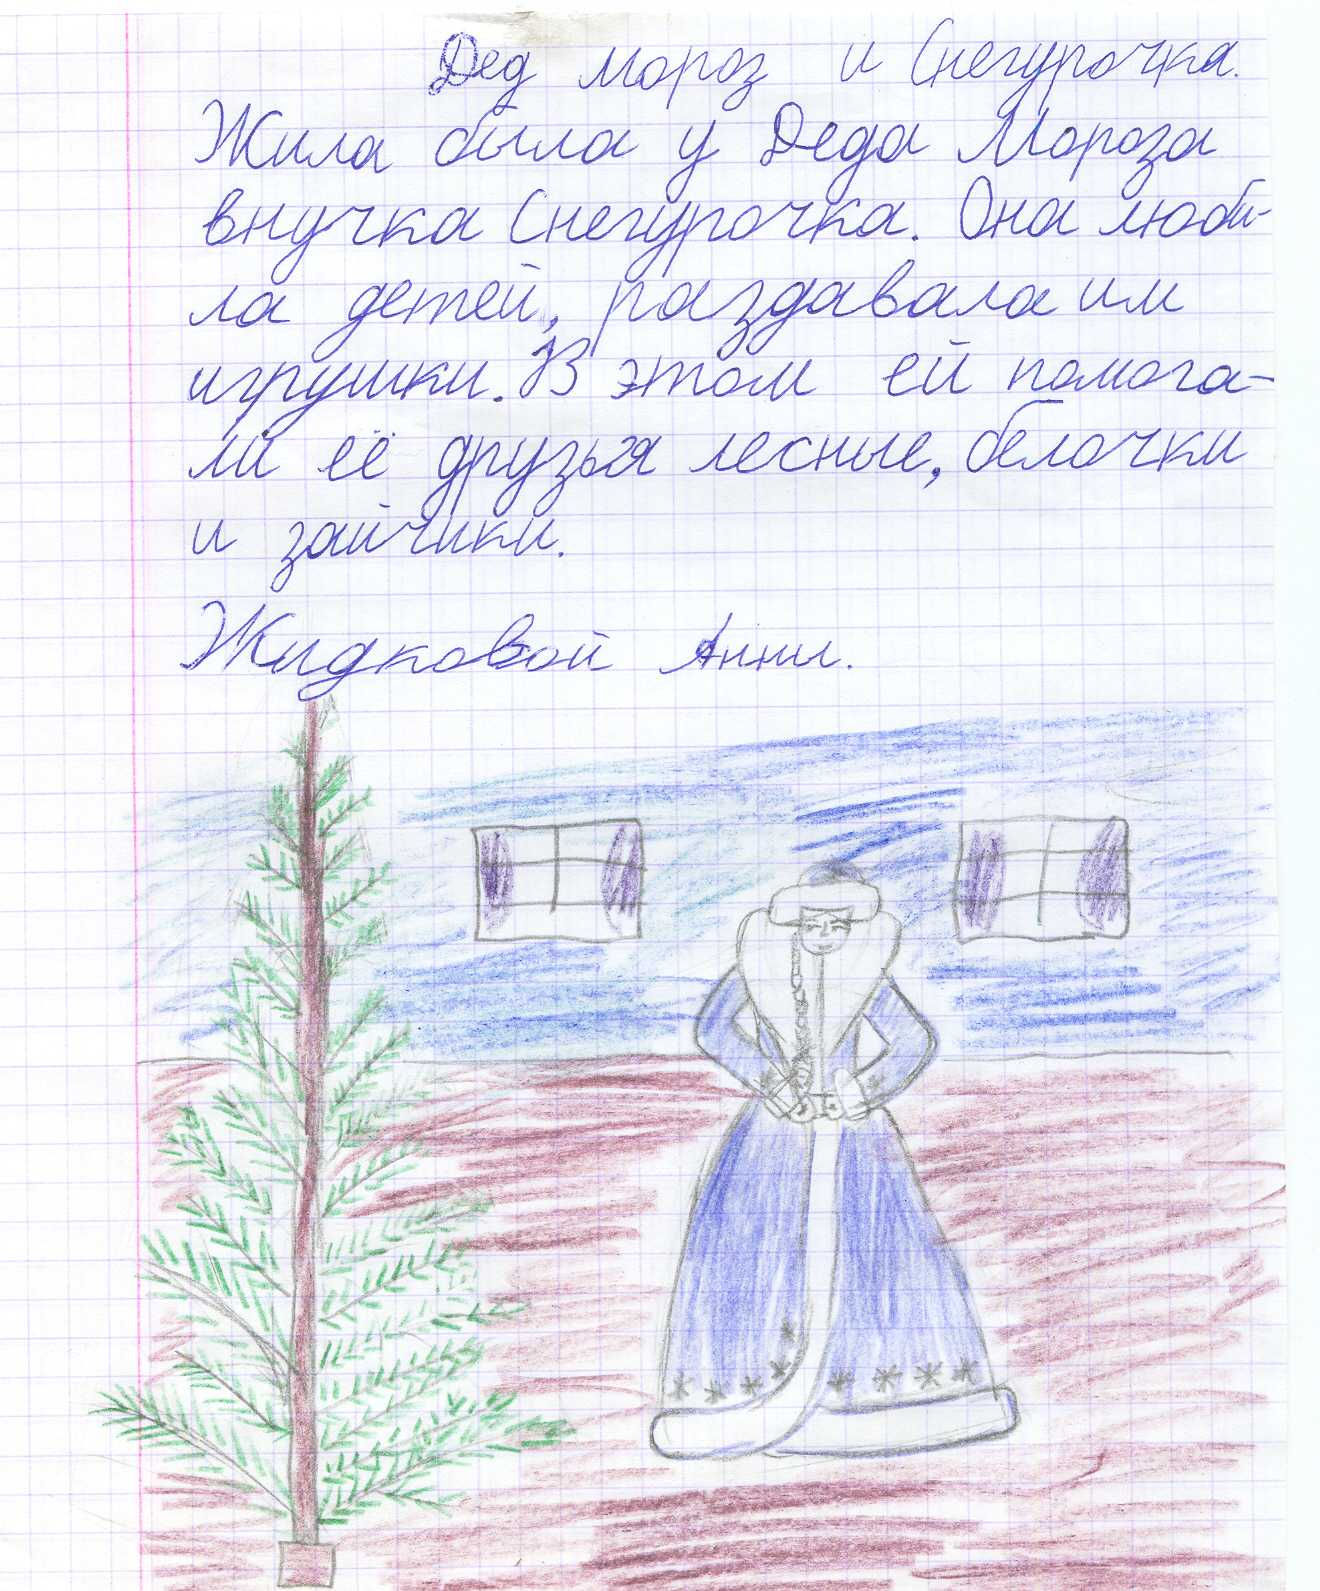 Дед мороз и Снегурочка.
Жила была у Деда Мороза
внучка Снегурочка. Она люби-
ла детей, раздавала им
игрушки. В этом ей помога-
ли её друзья лесные, белочки
и зайчики.
Жидковой Анны.